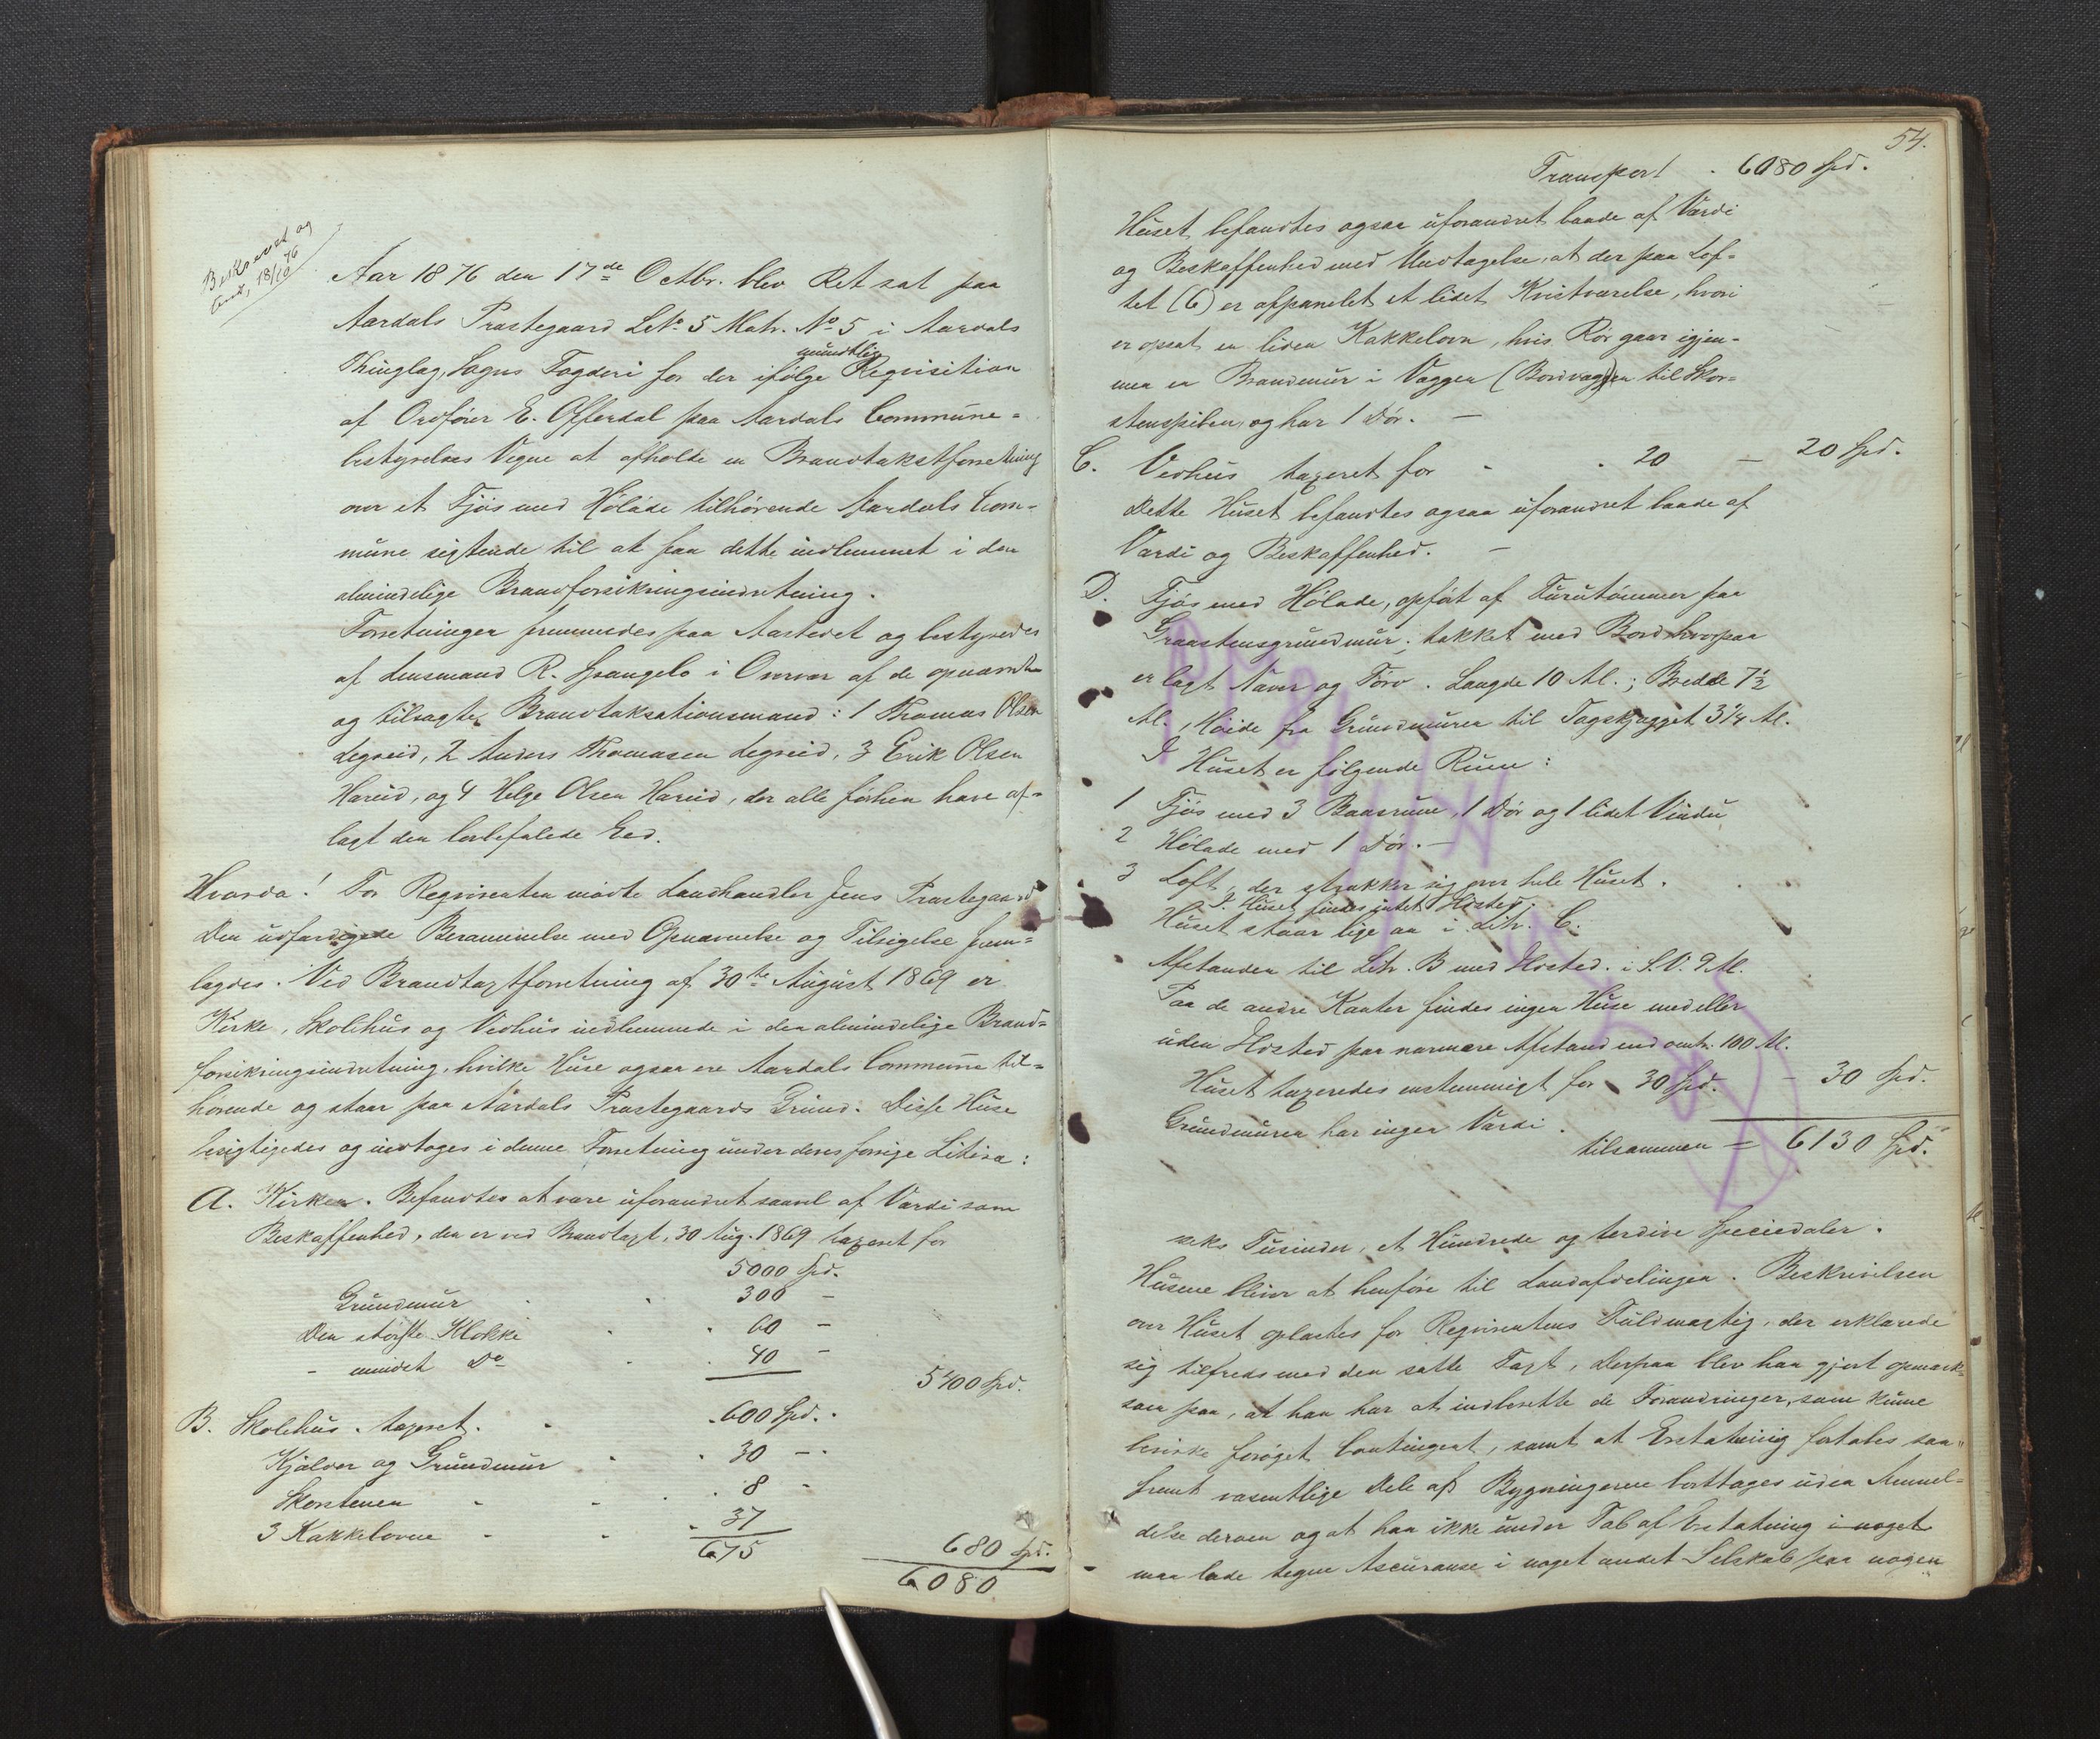 Beskrevet og
18/10 76
Aar 1876 den 17de Octbr. blev Ret sat paa
Aardals Præstegaard LNo 5 Matr. No 5 i Aardals
Thinglag, Sogns Fogderi for der ifølge mundtlig Requisition
af Ordfører E. Offerdal paa Aardals Commune-
bestyrelses Vegne at afholde en Brandtakstforretning
over et Fjøs med Hølade tilhørende Aardals Com-
mune sigtende til at faa dette indlemmet i den
almindelige Brandforsikringsindretning.
Forretningen fremmedes paa Aastedet og bestyredes
af Lensmand R. Spangelo i Overvær af de opnævnte
og tilsagte Brandtaksationsmænd: 1 Thomas Olsen
Legreid, 2 Anders Thomasen Legreid, 3 Erik Olsen
Hareid, og 4 Helge Olsen Hareid, der alle forhen have af-
lagt den lovbefalede Eed.
Hvorda! For Requirenten mødte Landhandler Jens Præstegaard
Den udfærdigede Berammelse med Opnævnelse og Tilsigelse frem-
lagdes. Ved Brandtaxtforretning af 30te August 1869 er
Kirke, Skolehus og Vedhus indlemmede i den almindelige Brand-
forsikringsindretning, hvilke Huse ogsaa ere Aardals Commune til-
hørende og staar paa Aardals Præstegaards Grund. Disse Huse
besigtigedes og indtoges i denne Forretning under deres forrige Litera:
A. Kirken. Befandtes at være uforandret saavel af Værdi som
Beskaffenhed, den er ved Brandtaxt, 30 Aug. 1869 taxeret for
5000 Spd.
Grundmur . . 300 –
Den største Klokke . 60 –
– mindst Do . . 40 –
5400 Spd.
B. Skolehus. taxeret. . . 600 Spd.
Kjælder og Grundmur . . 30 –
Skorstenen . . . 8 -
3 Kakkelovne . . . 37
675 680 Spd.
6080
54.
Transport . 6080 Spd.
Huset befandtes ogsaa uforandret baade af Værdi
og Beskaffenhed med Undtagelse, at der paa Lof-
tet (6) er afpanelet et lidet Kvistværelse, hvori
er opsat en liden Kakkelovn, hvis Rør gaar igjen-
nem en Brandmur i Væggen (Bordvæggen til Skor-
stenspiben, og har 1 Dør. –
C. Vedhus taxeret for . . 20 – 20 Spd.
Dette Huset befandtes ogsaa uforandret baade af
Værdi og Beskaffenhed. –
D. Fjøs med Hølade, opført af Furutømmer paa
Graastensgrundmur; takket med Bord hvorpaa
er lagt Næver og Torv. Længde 10 Al.; Bredde 7 1/2
Al., Høide fra Grundmuren til Tagskjægget 3 1/4 Al.
I Huset er følgende Rum:
1 Fjøs med 3 Baasrum, 1 Dør og 1 lidet Vindu
2 Hølade med 1 Dør. –
3 Loft, der strækker sig over hele Huset.
I Huset findes intet Ildsted.
Huset staar lige an i Litr. C.
Afstanden til Litr. B med Ildsted. i S.V. 9 Al.
Paa de andre Kanter findes ingen Huse med eller
uden Ildsted paa nærmere Afstand end omtr. 100 Al.
Huset taxeredes enstemmigt for 30 Spd. – 30 Spd.
Grundmuren har ingen Værdi.
tilsammen = 6130 Spd.
seks Tusinder, et Hundrede og tredive Speciedaler.
Husene bliver at henføre til Landafdelingen. Beskrivelsen
over Huset oplæstes for Requirentens Fuldmægtig, der erklærede
sig tilfreds med den satte Taxt, derpaa blev han gjort opmærk-
som paa, at han har at indberette de Forandringer, som kunne
bevirke forøget Contingent, samt at Erstatning fortabes saa-
fremt væsentlige Dele af Bygningerne borttages uden Anmel-
delse derom og at han ikke under Tab af Erstatning i noget
maa lade tegne Ascurance i noget andet Selskab paa nogen